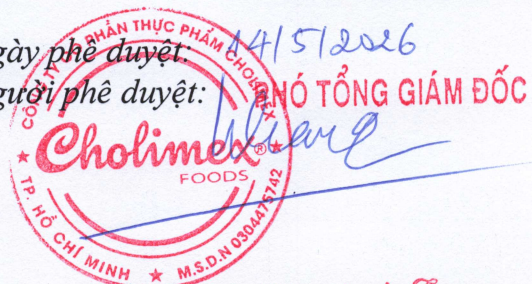 gày phê duyệt: 14/5/2026
gười phê duyệt: PHÓ TỔNG GIÁM ĐỐC
CÔNG TY CỔ PHẦN THỰC PHẨM CHOLIMEX
Cholimex®
FOODS
TP. HỒ CHÍ MINH ★ M.S.D.N 0304475742